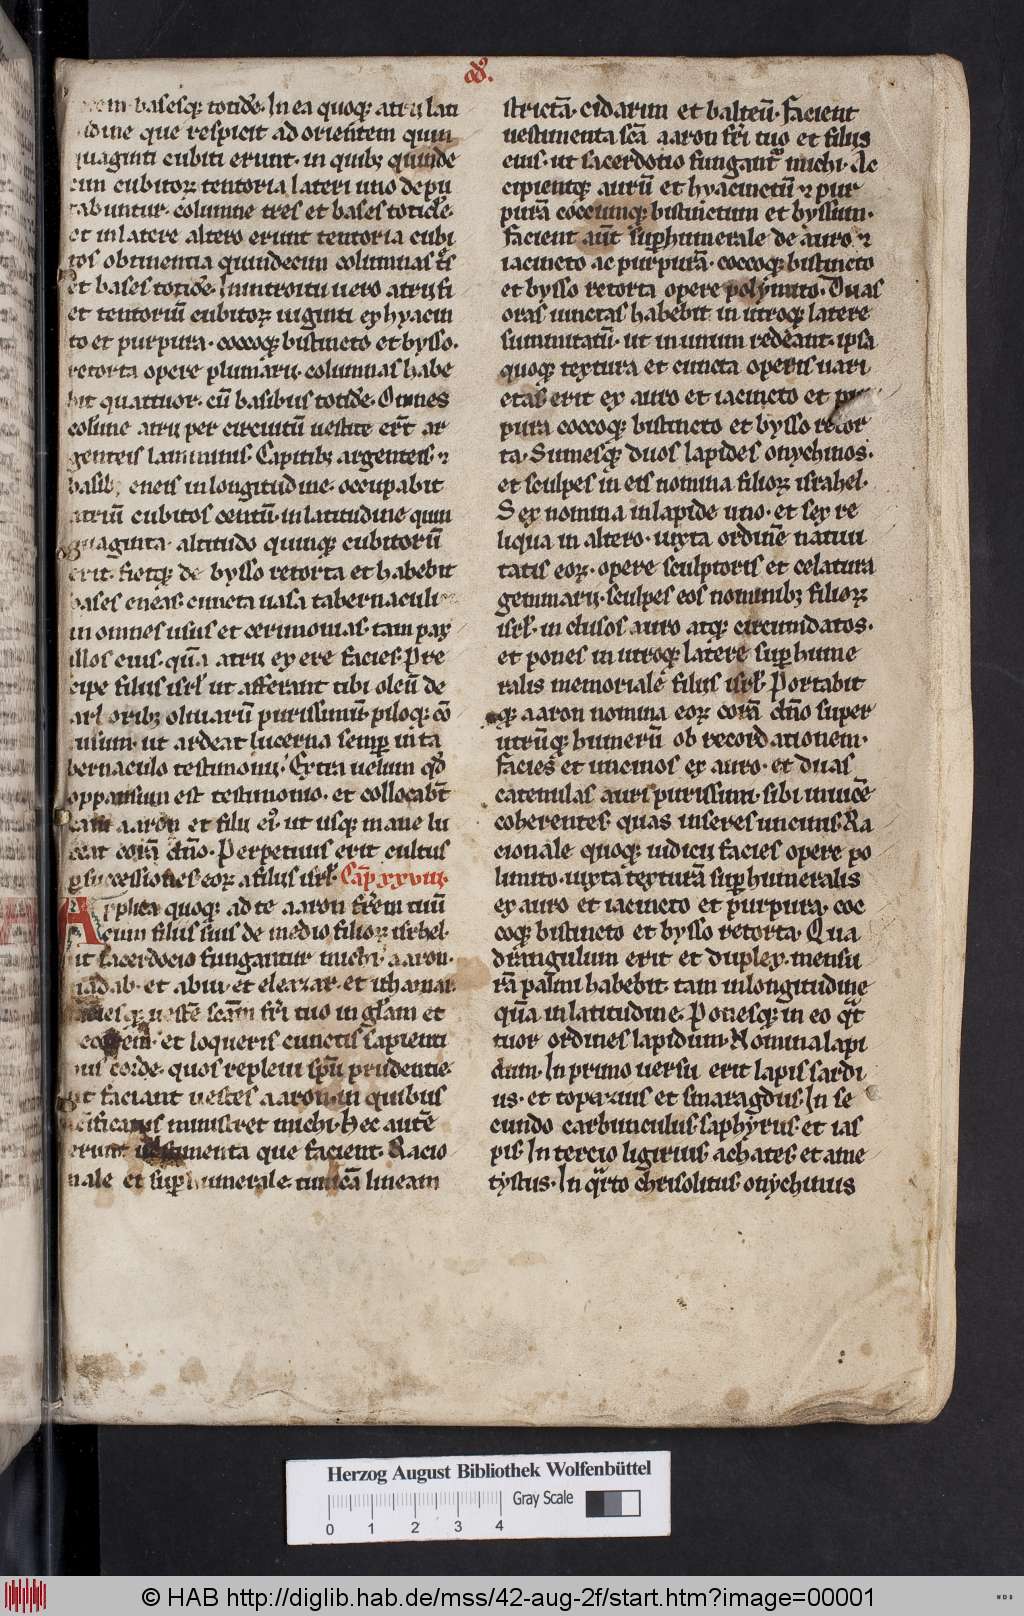 decem basesqꝫ totidē. In ea quoqꝫ atrii lati
tudine que respicit ad orientem quin
quaginti cubiti erunt. in quibꝫ quinde
cim cubitoꝝ tentoria lateri uno depu
tabuntur. columne tres et bases totidē.
et in latere altero erunt tentoria cubi
tos obtinentia quindecim columnas tͤs
et bases totidē. In introitu uero atrii fi
et tentoriū cubitoꝝ uiginti ex hyacin
to et purpura. coccoqꝫ bistincto et bysso.
retorta opere plumarii. columnas habe
bit quattuor. cū basibus totidē. Omnes
colūne atrii per circuitū uestite er̄t ar
genteis laminis. Capitibꝫ argenteis. ⁊
basibꝫ eneis in longitudine. occupabit
atriū cubitos centū. in latitudine quin
quaginta. altitudo quinqꝫ cubitorū
erit. fietqꝫ de bysso retorta et habebit
bases eneas. cuncta uasa tabernaculi
in omnes usus et cerimonias. tam pax
illos eius. quā atrii ex ere facies. Pre
cipe filiis isrl̄ ut afferant tibi oleū de
arboribꝫ oliuarū purissimū. piloqꝫ cō
tusum. ut ardeat lucerna semꝑ in ta
bernaculo testimonii. Extra uelum qd̄
oppansum est testimonio. et collocabt̄
eam aaron et filii eiꝰ. ut usqꝫ mane lu
ceat corā dn̄o. Perpetuus erit cultus
ꝑ successiones eoꝝ a filiis isrl̄. Cap̄ xxviii.
Applica quoqꝫ ad te aaron fr̄em tuū
cum filiis suis de medio filioꝝ isrhel.
ut sacerdocio fungantur michi. aaron.
nadab. et abiu. et eleazar. et ithamar.
faciesqꝫ uestē scām fr̄i tuo in gl̄am et
decorem. et loqueris cunctis sapienti
bus corde. quos repleui spū prudentie.
ut faciant uestes aaron. in quibus
scīficatus ministret michi. Hec autē
erunt uestimenta que facient. Racio
nale et suꝑhumerale. tunicā lineam
strictā. cidarim et balteū. facient
uestimenta scā aaron fr̄i tuo et filiis
eius. ut sacerdotio fungant᷑ michi. Ac
cipientqꝫ aurū et hyacinctū ⁊ pur
purā coccumqꝫ bistinctum et byssum.
facient aūt suꝑhumerale de auro ⁊
iacincto ac purpurā. coccoqꝫ bistincto
et bysso retorta opere polymito. Duas
oras iunctas habebit in utroqꝫ latere
summitatū. ut in unum redeant. ipsa
quoqꝫ textura et cuncta operis uari
etas erit ex auro et iacincto et pur
pura coccoqꝫ bistincto et bysso retor
ta. Sumesqꝫ duos lapides onychinos.
et sculpes in eis nomina filioꝝ israhel.
Sex nomina in lapide uno. et sex re
liqua in altero. iuxta ordinē natiui
tatis eoꝝ. opere sculptoris et celatura
gemmarii. sculpes eos nominibꝫ filioꝝ
isrl̄. in clusos auro atqꝫ circumdatos.
et pones in utroqꝫ latere suꝑhume
ralis memoriale filiis isrl̄. Portabit
qꝫ aaron nomina eoꝝ corā dn̄o super
utrūqꝫ humerū ob recordationem.
facies et uncinos ex auro. et duas
catenulas auri purissimi. sibi inuicē
coherentes. quas inseres uncinis. Ra
cionale quoqꝫ iudicii facies opere po
limito. iuxta texturā suꝑhumeralis
ex auro et iacincto et purpura. coc
coqꝫ bistincto et bysso retorta. Qua
drangulum erit et duplex. mensu
rā palmi habebit tam in longitudine
quā in latitudine. Ponesqꝫ in eo qᷓt
tuor ordines lapidum. Nomina lapi
dum. In primo uersu erit lapis sardi
us. et topazius et smaragdus. In se
cundo carbunculus. saphyrus. et ias
pis. In tercio ligirius. achates et ame
tystus. In qͣrto chrisolitus. onychinus
Herzog August Bibliothek Wolfenbüttel
Gray Scale
0 1 2 3 4
© HAB http://diglib.hab.de/mss/42-aug-2f/start.htm?image=00001